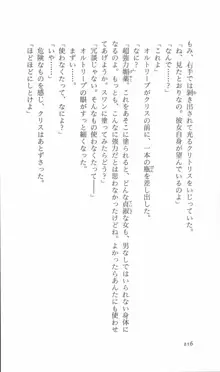 もみ、右手では剥き出されて光るクリトリスをいじっていた。
「ね、見たとおりなの。彼女自身が望んでいるのよ」
「なんで……」
「これよ」
オルトリーブがクリスの前に、一本の瓶を差し出した。
「超強力媚薬。これをあそこに塗られると、どんな貞淑な女も、男なしではいられない身体に
なるの。もっとも、こんなに強力だとは思わなかったけどね。よかったらあんたにも使わせ
てあげようか。スワンに塗ってみたらどう？」
「冗談じゃない。そんなもの使わなくたって――」
まずい……オルトリーブの眼がすっと細くなった。
「使わなくて、なによ？」
「いや……」
危険なものを感じ、クリスはあとずさった。
「ほどほどにしとけよ」
216